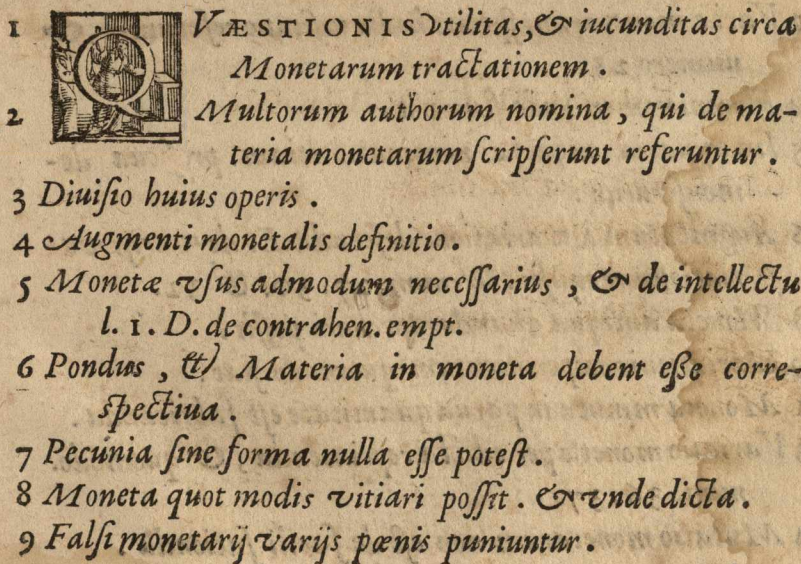 1 QVÆSTIONIS vtilitas, & iucunditas circa
Monetarum tractationem.
2 Multorum authorum nomina, qui de ma-
teria monetarum ſcripſerunt referuntur.
3 Diuiſio huius operis.
4 Augmenti monetalis definitio.
5 Monetæ vſus admodum neceſſarius, & de intellectu
l. 1. D. de contrahen. empt.
6 Pondus, & Materia in moneta debent eſſe corre-
ſpectiua.
7 Pecunia ſine forma nulla eſſe poteſt.
8 Moneta quot modis vitiari poſſit. & vnde dicta.
9 Falſi monetarij varijs pœnis puniuntur.